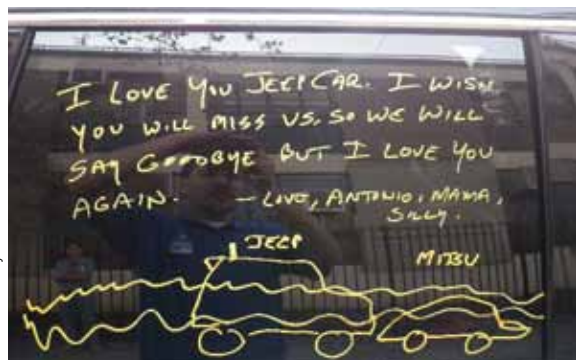 I LOVE YOU JEEP CAR. I WISH
YOU WILL MISS US. SO WE WILL
SAY GOODBYE BUT I LOVE YOU
AGAIN. - LOVE, ANTONIO, MAMA,
SILLY.
JEEP
MITSU